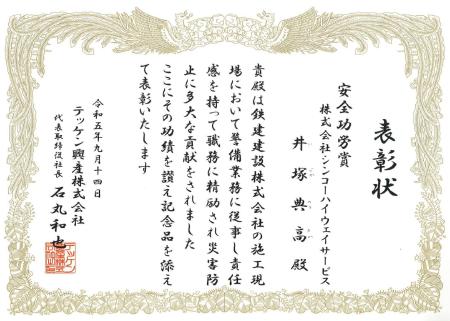 表彰状
安全功労賞
株式会社シンコーハイウェイサービス
井塚典高殿
貴殿は鉄建建設株式会社の施工現
場において警備業務に従事し責任
感を持って職務に精励され災害防
止に多大な貢献をされました
ここにその功績を讃え記念品を添え
て表彰いたします
令和五年九月十四日
テッケン興産株式会社
代表取締役社長 石丸和也